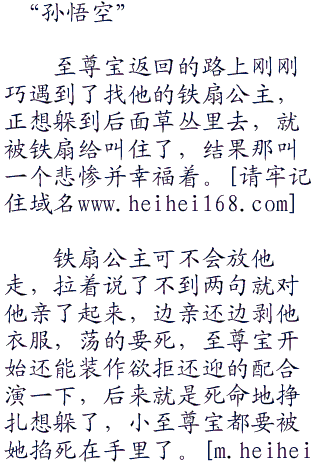 “孙悟空”
至尊宝返回的路上刚刚
巧遇到了找他的铁扇公主，
正想躲到后面草丛里去，就
被铁扇给叫住了，结果那叫
一个悲惨并幸福着。[请牢记
住域名www.heihei168.com]
铁扇公主可不会放他
走，拉着说了不到两句就对
他亲了起来，边亲还边剥他
衣服，荡的要死，至尊宝开
始还能装作欲拒还迎的配合
演一下，后来就是死命地挣
扎想躲了，小至尊宝都要被
她掐死在手里了。[m.heihei